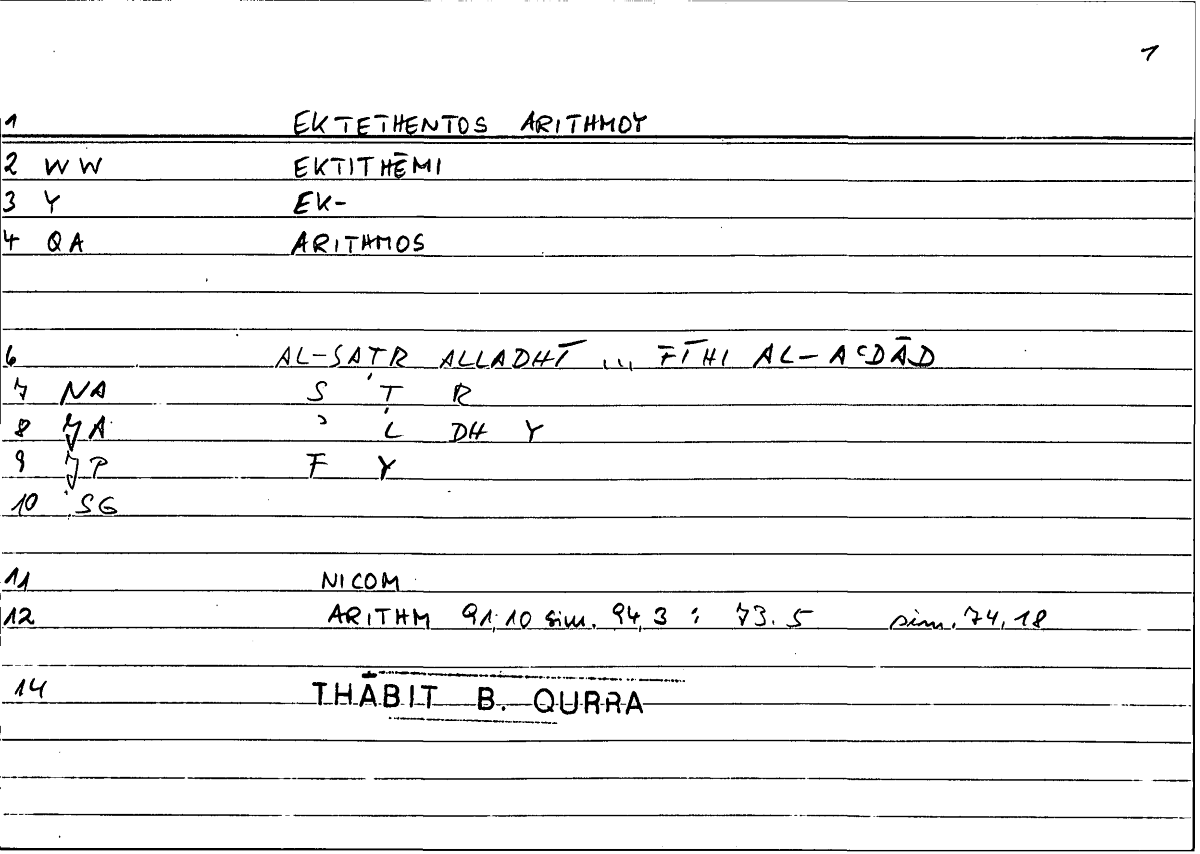 1
1 EKTETHENTOS ARITHMOY
2 WW EKTITHĒMI
3 Y EK-
4 QA ARITHMOS
6 AL-SAṬR ALLADHĪ ... FĪHI AL-AʿDĀD
7 NA S Ṭ R
8 JA ʾ L DH Y
9 JP F Y
10 SG
11 NICOM
12 ARITHM 91,10 sim. 94,3 : 73.5 sim. 74,18
14 THĀBIT B. QURRA